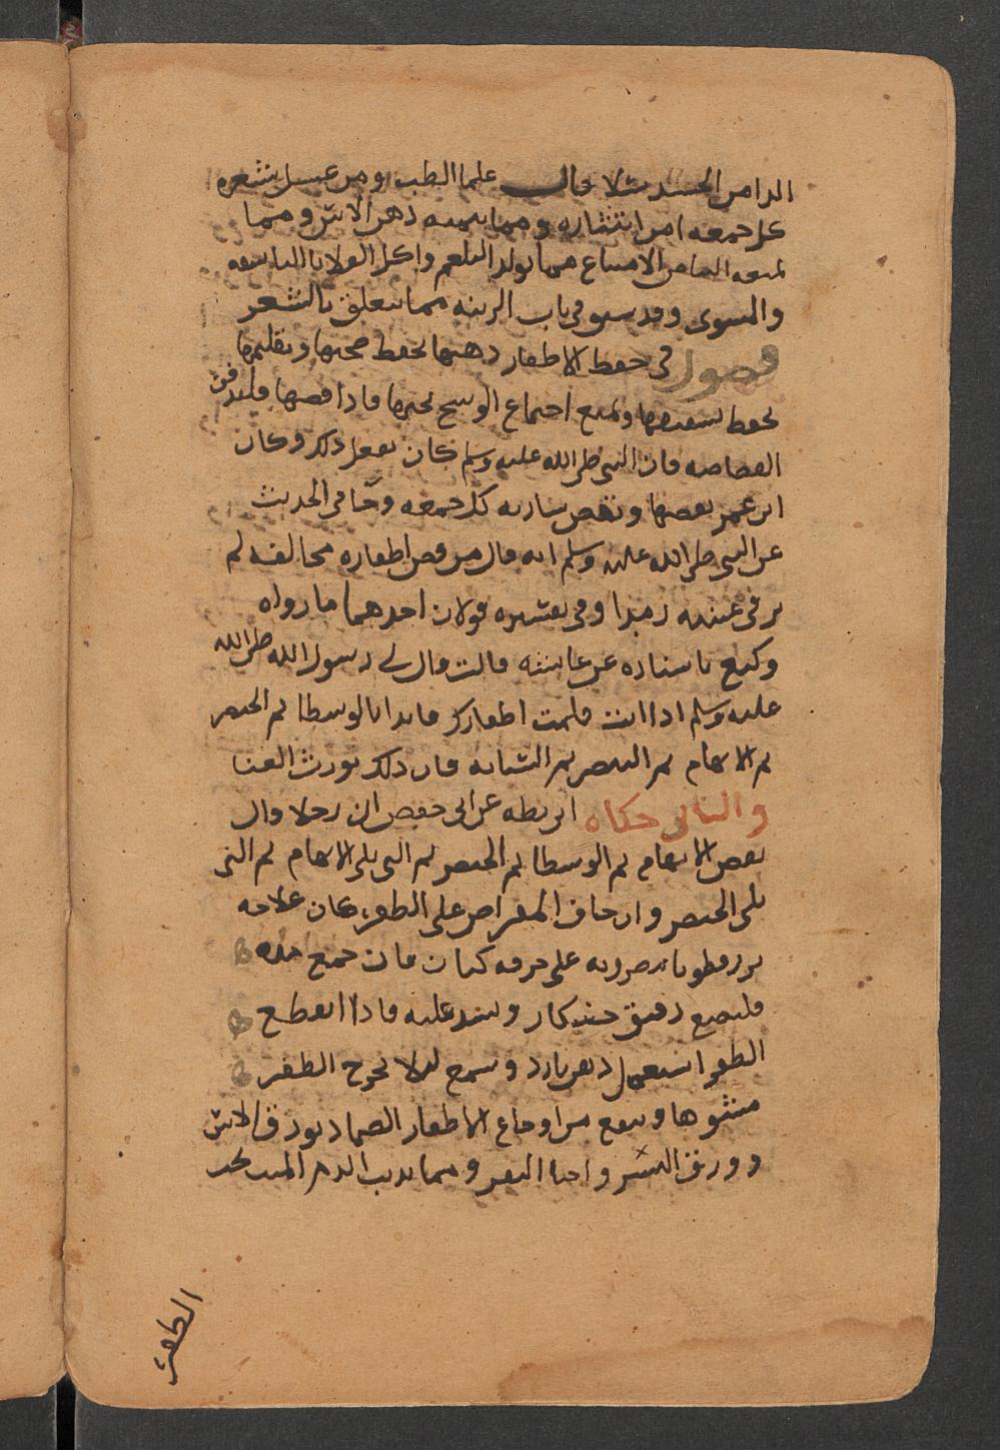 الدا من الجسد مثلا قال علما الطب ومن غسل شعره
كل جمعه امن انتثاره ومما ينميه دهن الاس ومما
يمنعه الصا من الامتناع مما يولد البلغم واكل الفولانا اليابسه
والمسوى وقد سبق في باب الزينه مما يتعلق بالشعر
فصول في حفظ الاظفار دهنها يحفظ صحتها وتقليمها
يحفظ تشعيثها ويمنع اجتماع الوسخ تحتها فاذا قصها فليدفن
القصاصه فان النبي صلى الله عليه وسلم كان يفعل ذلك وكان
ابن عمر يقصها ويقص شاربه كل جمعه وجا في الحديث
عن النبي صلى الله عليه وسلم انه قال من قص اظفاره مخالفه لم
ير في عينيه رمدا وفي تفسيره قولان احدهما ما رواه
وكيع باسناده عن عايشه قالت قال لي رسول الله صلى الله
عليه وسلم اذا انت قلمت اظفارك فابدا بالوسطا ثم الخنصر
ثم الابهام ثم البنصر ثم السبابه فان ذلك يورث الغنا
والثاني حكاه ابن بطه عن ابي حفص ان رجلا قال
يقص الابهام ثم الوسطا ثم الخنصر ثم التي تلي الابهام ثم التي
تلي الخنصر وان حاف المقراض على الظفر كان علاجه
بزر قطونا مضروبه على خرقه كتان فان جمع مده
فليصنع دقيق خشكار ويشد عليه فاذا انقطع
الظفر استعمل دهن بارد وشمع ليلا يخرج الظفر
مشوها وينفع من اوجاع الاظفار الضماد بورق الاس
وورق السرو واخثا البقر ومما يذيب الدم الميت تحت
الظفر